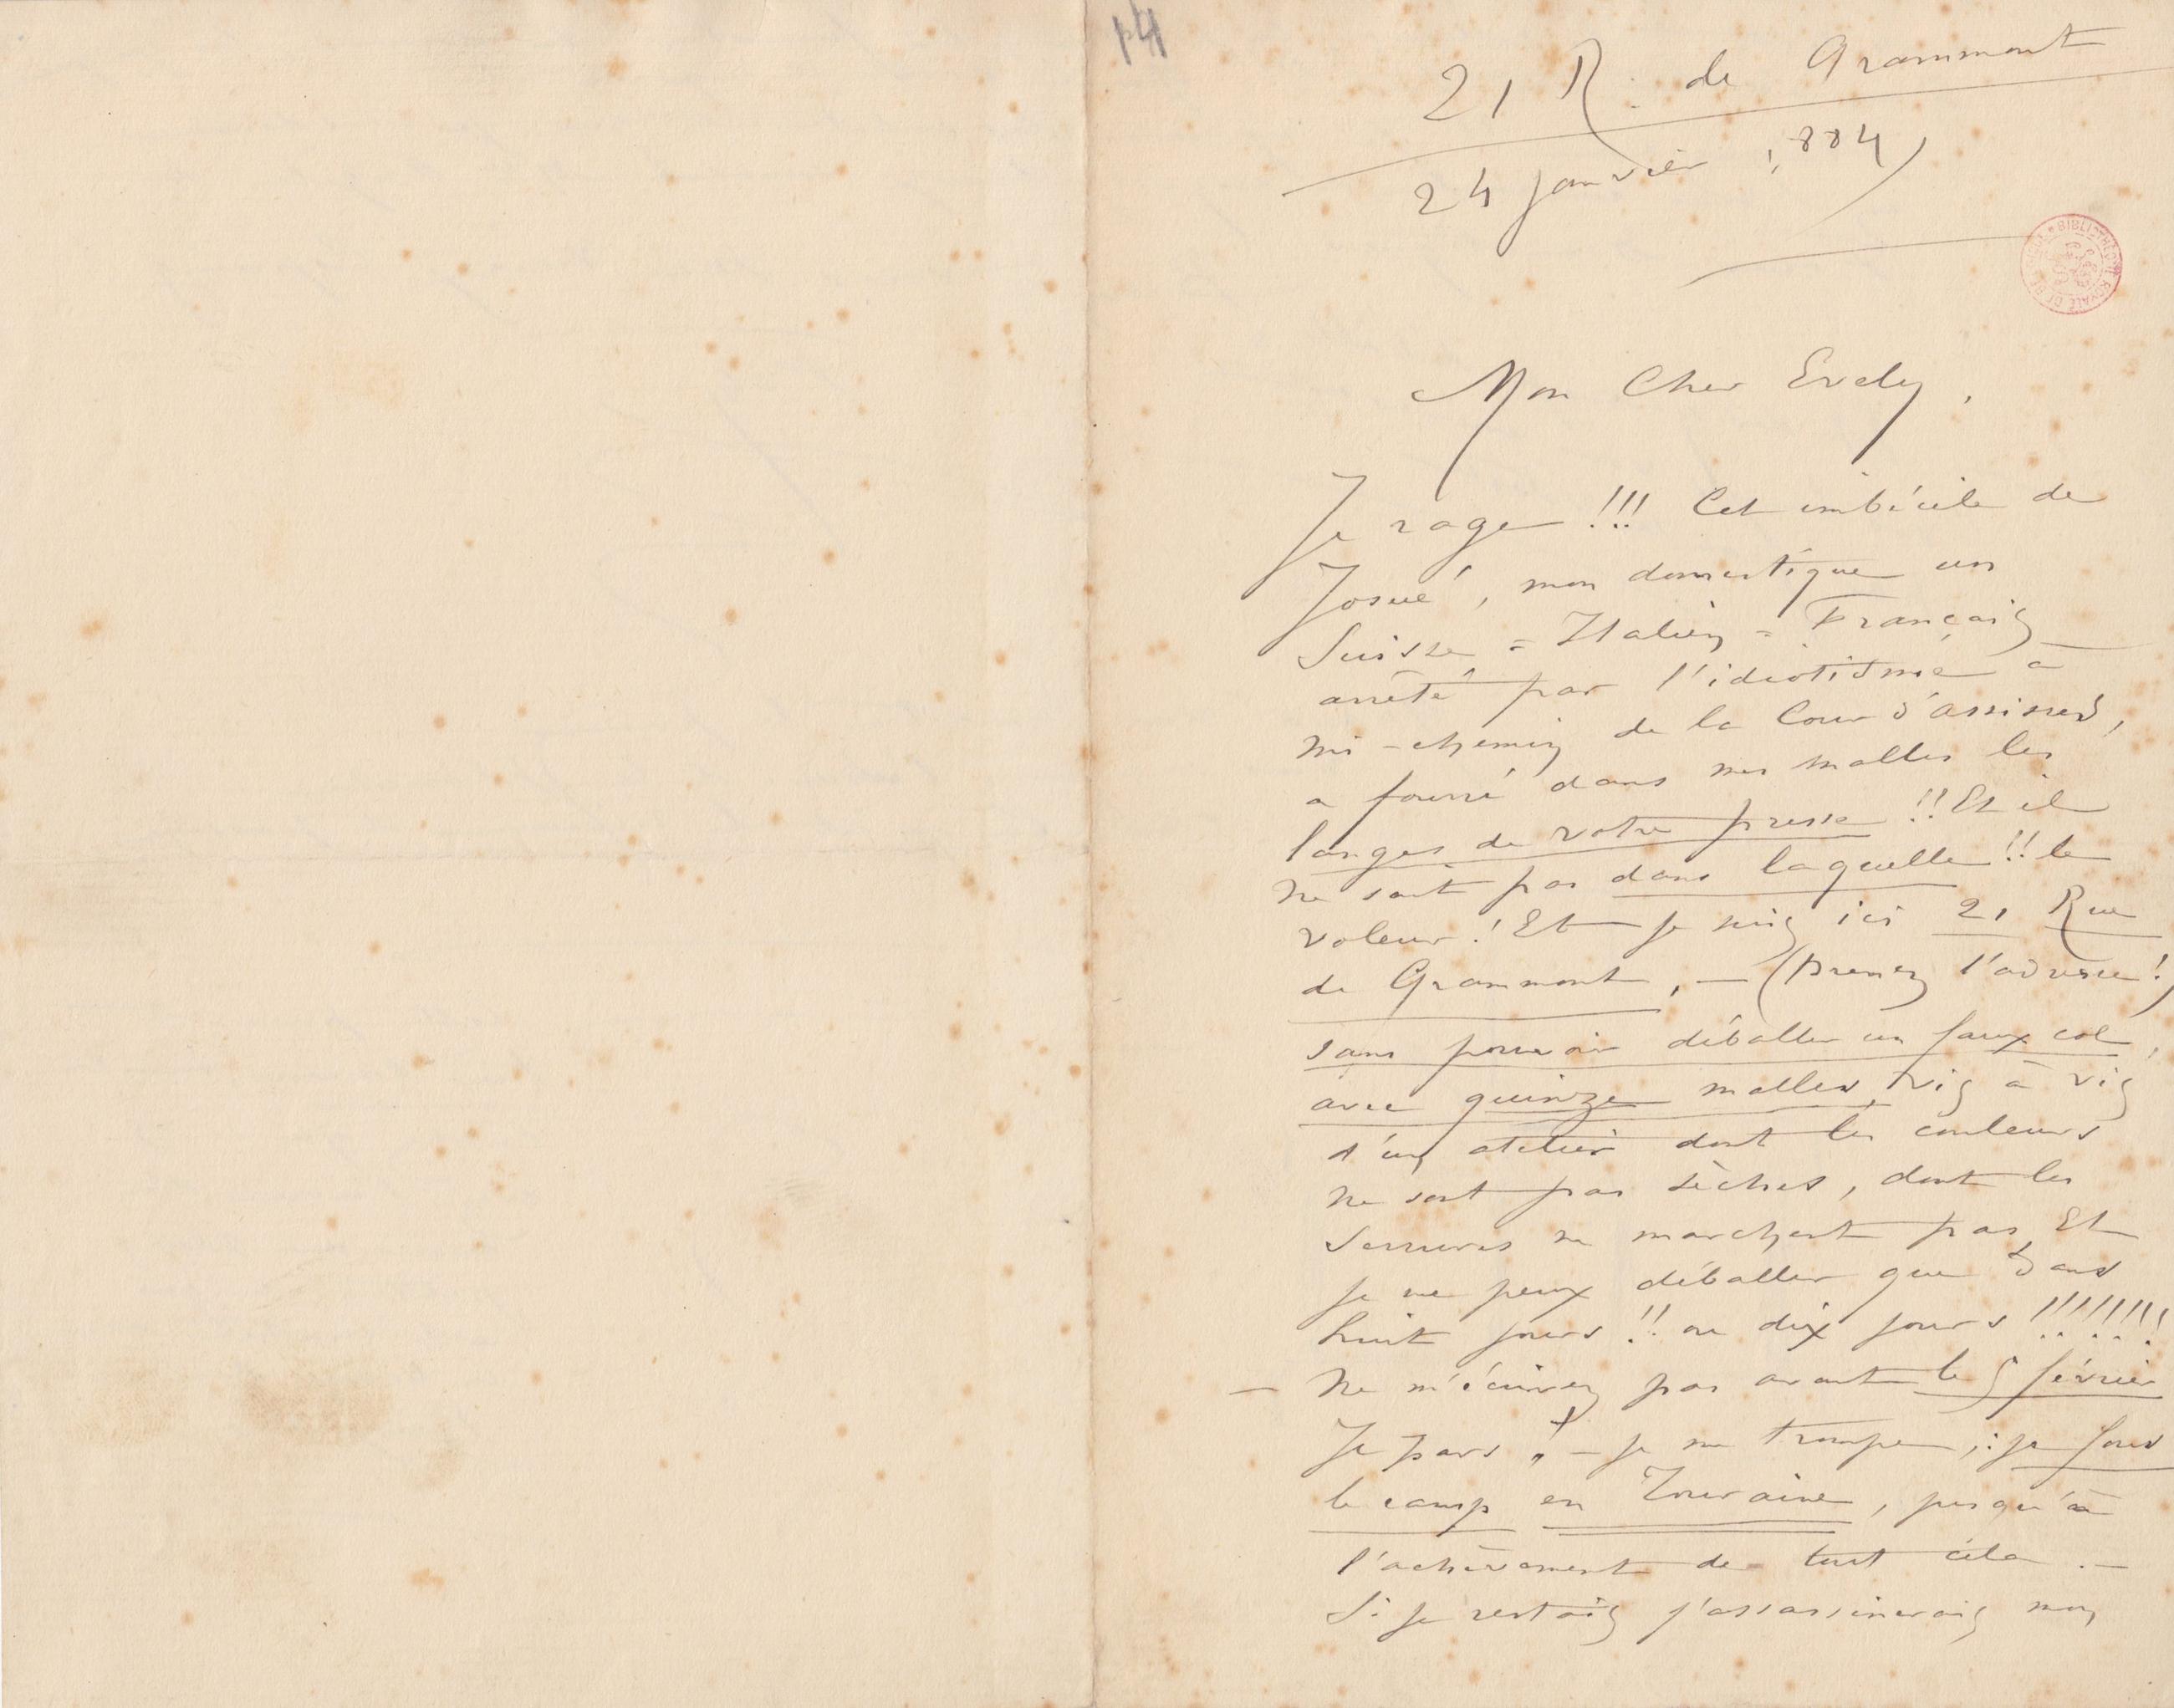 14
21 R. de Grammont
24 janvier 1884
BIBLIOTHÈQUE ROYALE DE BELGIQUE
Mon Cher Evely,
Je rage !!! Cet imbécile de
Josué, mon domestique un
Suisse = Italien = Français
arrêté par l'idiotisme à
mi-chemin de la Cour d'assises,
a fourré dans mes malles les
langes de votre presse !! Et il
ne sait pas dans laquelle !! le
voleur ! Et je suis ici 21 Rue
de Grammont, — (Prenez l'adresse !)
sans pouvoir déballer un faux col,
avec quinze malles, vis à vis
d'un atelier dont les couleurs
ne sont pas sèches, dont les
serrures ne marchent pas, Et
je ne peux déballer que dans
huit jours !! ou dix jours !!!!!!!!
— Ne m'écrivez pas avant le 5 février
Je pars ! — je me trompe, : je fous
le camp en Touraine, jusqu'à
l'achèvement de tout cela. —
Si je restais j'assassinerais mon